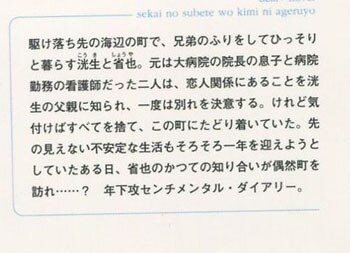 sekai no subete wo kimi ni ageruyo
駆け落ち先の海辺の町で、兄弟のふりをしてひっそり
と暮らす洸生と省也。元は大病院の院長の息子と病院
勤務の看護師だった二人は、恋人関係にあることを洸
生の父親に知られ、一度は別れを決意する。けれど気
付けばすべてを捨て、この町にたどり着いていた。先
の見えない不安定な生活もそろそろ一年を迎えようと
していたある日、省也のかつての知り合いが偶然町を
訪れ……? 年下攻センチメンタル・ダイアリー。